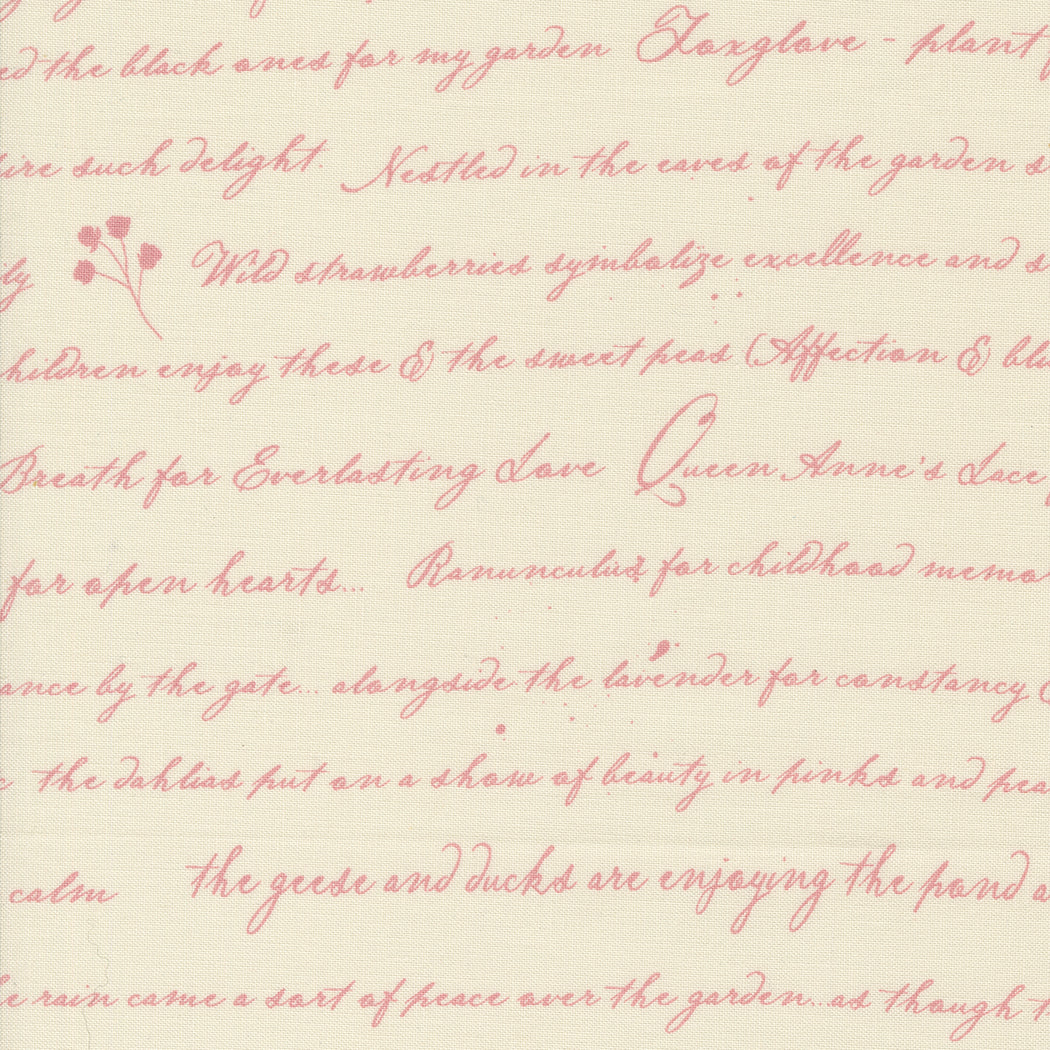 ed the black ones for my garden Foxglove - plant
ire such delight. Nestled in the eaves of the garden s
ly Wild strawberries symbolize excellence and s
hildren enjoy these & the sweet peas (Affection & blu
Breath for Everlasting Love Queen Anne's Lace
for open hearts... Ranunculus for childhood memo
ance by the gate... alongside the lavender for constancy
the dahlias put on a show of beauty in pinks and pea
calm the geese and ducks are enjoying the pond a
e rain came a sort of peace over the garden...as though t